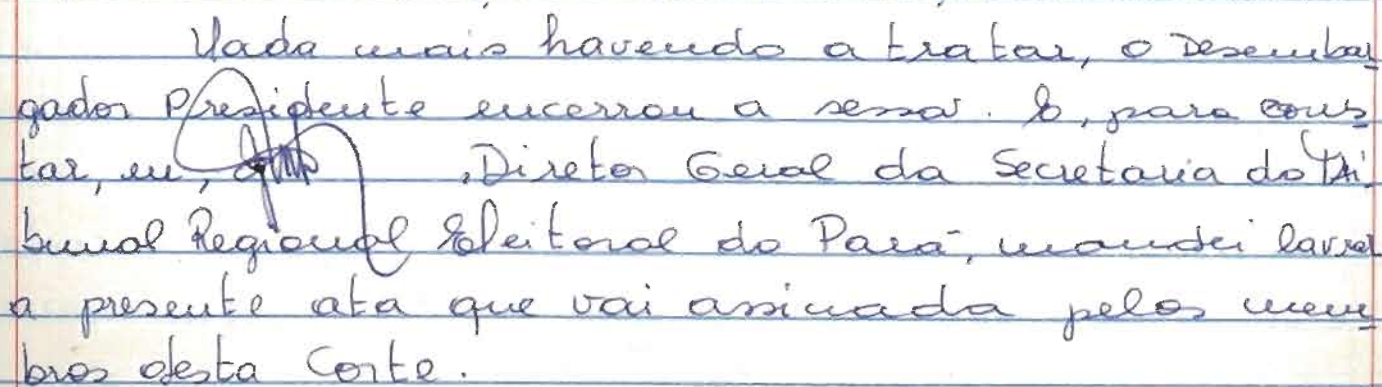 Nada mais havendo a tratar, o Desembar
gador Presidente encerrou a sessão. E, para cons
tar, eu, , Diretor Geral da Secretaria do Tri
bunal Regional Eleitoral do Pará, mandei lavrar
a presente ata que vai assinada pelos mem
bros desta Corte.